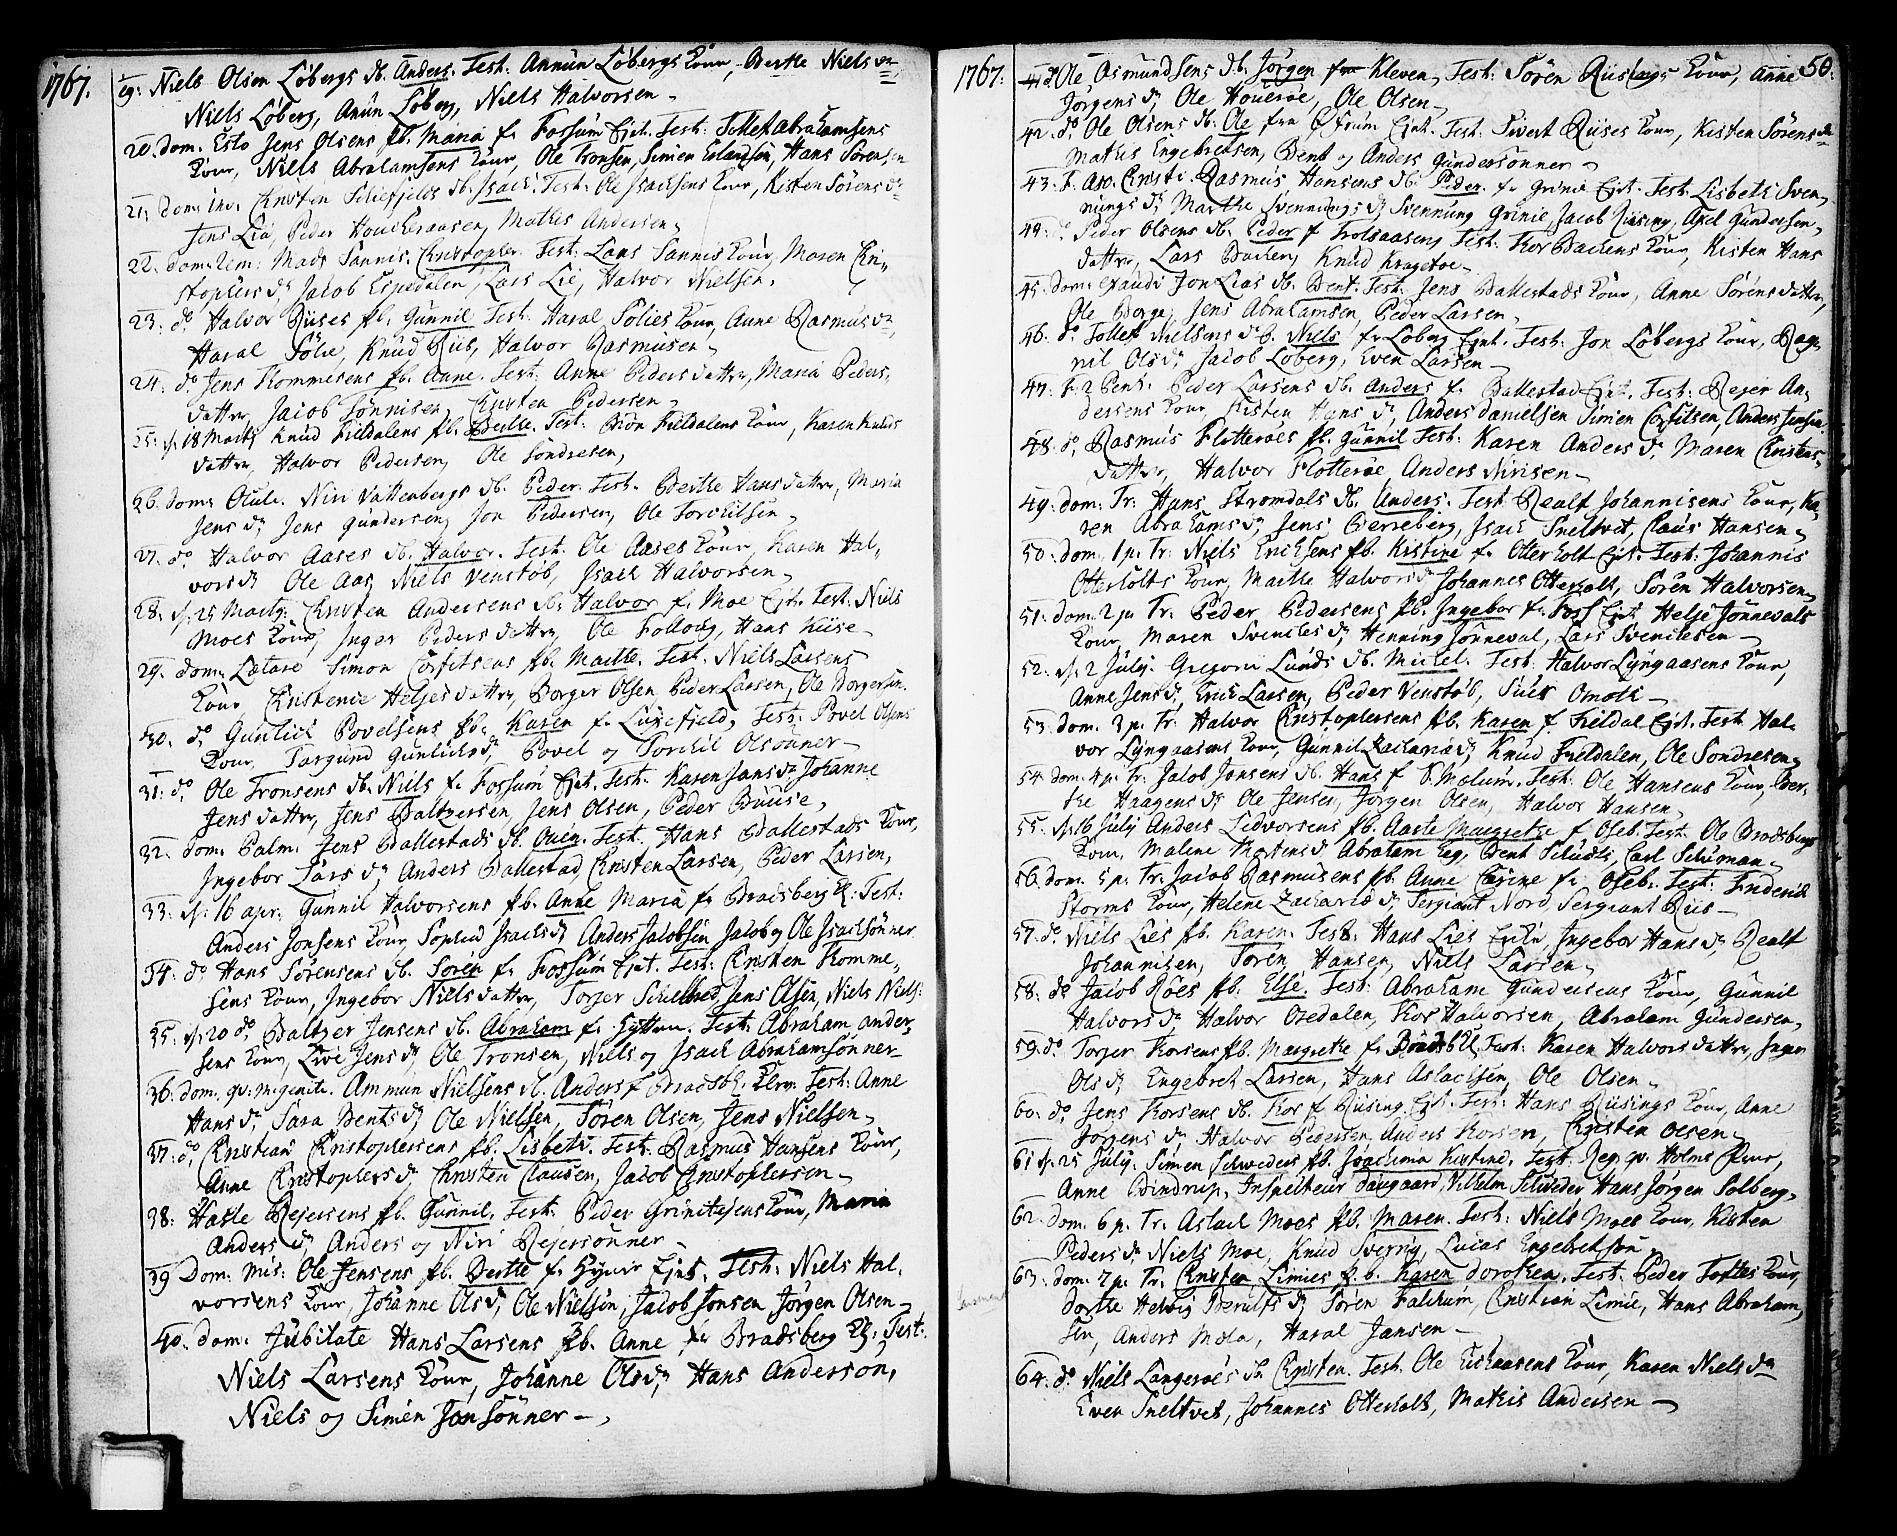 1767.
19: Niels Olsen Løbergs db. Anders. Test: Ammun Løbergs Kone, Berthe Niels dr
Niels Løberg, Amun Løberg, Niels Halvorsen
20. dom. Esto Jens Olsens pb. Maria fr. Fossum Ejet. Test: Tollef Abrahamsens
Kone, Niels Abrahamsens Kone, Ole Tronsen, Simen Erlandsen, Hans Sørensen
21. dom. inv. Christen db. Isach. Test: Ole Isachsens Kone, Kisten Sørens dr
Jens Lia, Peder Mathis Andersen
22. dom. rem: Mads Sannis. Christopher. Test: Lars Sannis Kone, Maren Chri-
stophers dr Jacob Espedalen, Lars Lie, Halvor Nielsen.
23. do Halvor Riises pb. Gunnil Test: Haral Solies Kone, Anne Rasmus dr
Haral Solie, Knud Riis, Halvor Rasmusen
24. do Jens Kommesens pb. Anne. Test: Anne Peders datter, Maria Peders
datter, Jacob Sønnisen, Christen Pedersen
25. d. 18 Marty Knud Fieldalens pb. Berthe. Test: Fieldalens Kone, Karen Knuds
datter, Halvor Pedersen, Ole Sondresen,
26. dom. Oculi. Niri Vattenbergs db. Peder. Test. Berthe Hans datter, Maria
Jens dr Jens Gundersen, Jon Pedersen, Ole Torchilsen
27. do Halvor Aases db. Halvor. Test. Ole Aases Kone, Karen Hal-
vors dr Ole Aas, Niels Venstøb, Isach Halvorsen
28. d. 25 Marty: Christen Andersens db. Halvor fr. Moe Ejet. Test: Niels
Moes Kone, Inger Peders datter, Ole Follaug, Hans Kiise
29. dom. Lætare Simon Corfitsens pb. Marthe. Test. Niels Larsens
Kone Christence Heljes datter, Borger Olsen Peder Larsen, Ole Borgersen.
30. do Gunlich Povelsens pb. Karen fr. Luxefjeld, Test: Povel Olsens
Kone, Targund Gunlichs dr Povel og Torchil Olsønner
31. do Ole Tronsens db. Niels fr. Fossum Ejet. Test: Karen Jans dr Johanne
Jens datter, Jens Baltzersen, Jens Olsen, Peder Buuse,
32. dom. Palm. Jens Ballestads db. Ouen. Test. Hans Ballestads Kone,
Ingebor Lars dr Anders Ballestad, Christen Larsen, Peder Larsen,
33. d. 16 apr. Gunnil Halvorsens pb. Anne Maria fr. Bradsberg Kl. Test:
Anders Jonsens Kone, Sophia Isachs dr Anders Jacobsen Jacob og Ole Isachsønner
34. do Hans Sørensens db. Søren fr. Fossum Ejet. Test: Christen Komme-
sens Kone, Ingebor Niels datter, Torjer Jens Olsen, Niels Niels.
35. d. 20 do Baltzer Jensens db. Abraham fr. Hytten. Test: Abraham Ander-
sens Kone, Live Jens dr Ole Tronsen, Niels og Isach Abrahamsønner
36. dom. qv. m. genite. Ammun Nielsens db. Anders f Bradsb. Test: Anne
Hans dr Sara Bents dr Ole Nielsen, Søren Olsen, Jens Nielsen
37. do Christian Christophersens pb. Lisbeth. Test: Rasmus Hansens Kone,
Anne Christophers dr Christen Clausen, Jacob Christophersen
38: Halle Rejersens pb. Gunnil. Test: Peder Grinitejens Kone, Maria
Anders dr Anders og Niri Rejersønner
39 Dom. Mis: Ole Jensens pb. Berthe fr. Ejet. Test: Niels Hal-
vorsens Kone, Johanne Ols dr Ole Nielsen, Jacob Jonsen Jørgen Olsen
40. dom. Jubilate Hans Larsens pb. Anne fr Bradsberg Kl: Test:
Niels Larsens Kone, Johanne Ols dr, Hans Anderson,
Niels og Simen Jonsønner
1767. 50.
41. do Ole Osmundsens db. Jørgen fra Kleven, Test: Søren Riisings Kone, Anne
Jørgens dr Ole Houerøe, Ole Olsen
42. do Ole Olsens db. Ole fra Ejet. Test: Sivert Riises Kone, Kisten Sørens dr
Mathis Engebretsen, Bent og Anders Gundersønner
43. F. Asc. Christi. Rasmus Hansens db. Peder. fr Grinie Ejet. Test. Lisbeth Sven-
nungs dr Marthe Svennungs dr Svennung Grinie, Jacob Riising, Axel Gundersen,
44. do Peder Olsens db. Peder f Trolsaasen, Test: Thor Bachens Kone, Kisten Hans
datter, Lars Bachen, Knud Kragetoe
45. dom. exaudi Jon Lias db. Bent. Test: Jens Ballestads Kone, Anne Sørens datter,
Ole Borge, Jens Abrahamsen, Peder Larsen
46. do Tollef Nielsens db. Niels fr. Løberg Ejet. Test: Jon Løbergs Kone, Rag-
nil Ols dr Jacob Løberg, Even Larsen
47. F. 2 Pent: Peder Larsens db. Anders f. Ballestad Ejet. Test: Rejer An-
dersens Kone, Kisten Hans dr Anders Danielsen Simen Corfitsen, Anders Jensen
48. do Rasmus Flotterøes pb. Gunnil Test: Karen Anders dr Maren Christens
datter, Halvor Flotterøe Anders Nirisen
49. dom. Tr: Hans Strømdals db. Anders. Test: Realf Johannisens Kone, Ka-
ren Abrahams dr Jens Berreberg, Isach Sneltvet, Claus Hansen
50. dom. 1 p. Tr: Niels Erichsens pb. Kistine fr. Otterholt Ejet. Test: Johannis
Otterholts Kone, Marthe Halvors dr Johannes Otterholt, Søren Halvorsen
51. dom. 2 p. Tr. Peder Pedersens pb. Ingebor fr. Foss Ejet. Helje Jønnevals
Kone, Maren Svenches dr, Henning Jønneval, Lars Svenchesen
52. d. 2 July. Gregori Lunds db. Michel. Test: Halvor Lyngaasens Kone,
Anne Jens dr, Erich Larsen, Peder Venstøb, Siur Omoth
53. dom. 3 p. Tr. Halvor Christophersens pb. Karen f. Fieldal Ejet. Test. Hal-
vor Lyngaasens Kone, Gunnil Zacharias dr, Knud Fieldalen, Ole Sondresen
54 dom. 4 p. Tr. Jacob Jonsens db. Hans f S. Molum. Test: Ole Hansens Kone, Ber-
the Haagens dr Ole Jensen, Jørgen Olsen, Halvor Hansen
55. d. 16 July Anders Ledvorsens pb. Aaste Margrethe f Oseb. Test Ole Bradsbergs
Kone, Malene Mortens dr Abraham Eeg, Bent Schudts, Carl Schuman
56. dom. 5 p. Tr. Jacob Rasmusens pb. Anne Carine fr. Oseb. Test. Friderich
Storms Kone, Helene Zacharias dr Sergiant Nord, Sergiant Riis
57. do Niels Lies pb. Karen. Test: Hans Lies Enke, Ingebor Hans dr Realf
Johannisen, Søren Hansen, Niels Larsen
58. do Jacob Røes pb. Else. Test: Abraham Gundersens Kone, Gunnil
Halvors dr Halvor Osedalen, Kors Halvorsen, Abraham Gundersen,
59. do Torjer Korsens pb. Margrethe fr Bradsb Kl. Test: Karen Halvors datter, Inger
Ols dr Engebret Larsen, Hans Aslachsen, Ole Olsen
60. do Jens Korsens db. Kors f Riising Ejet. Test: Hans Riisings Kone, Anne
Jørgens dr Halvor Pedersen, Anders Korsen, Christen Olsen
61 d. 25 July. Simen Schweders pb. Joachima Kistine. Test. Reg. qv. Holms Frue,
Anne Bindrup, Inspecteur Daugaard, Vilhelm Schweder Hans Jørgen Solberg,
62. dom. 6 p. Tr. Aslach Moes pb. Maren. Test: Niels Moes Kone, Kisten
Peders dr Niels Moe, Knud Sverrig, Lucas Engebretsen
63. dom. 7 p. Tr. Christen Limies p.b. Karen Dorothea. Test. Peder Toftes Kone,
Dorthe Hedvig Berulfs dr Søren Falchum, Christian Limie, Hans Abraham-
sen, Anders Mæla, Haral Jansen
64. do Niels Langerøes db. Christen. Test. Ole Kone, Karen Niels dr
Even Sneltvet, Johannes Otterholt, Mathis Andersen